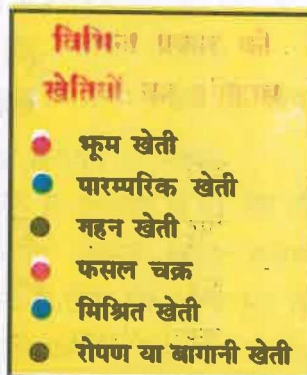 विभिन्न प्रकार की
खेतियों
झूम खेती
पारम्परिक खेती
गहन खेती
फसल चक्र
मिश्रित खेती
रोपण या बागानी खेती